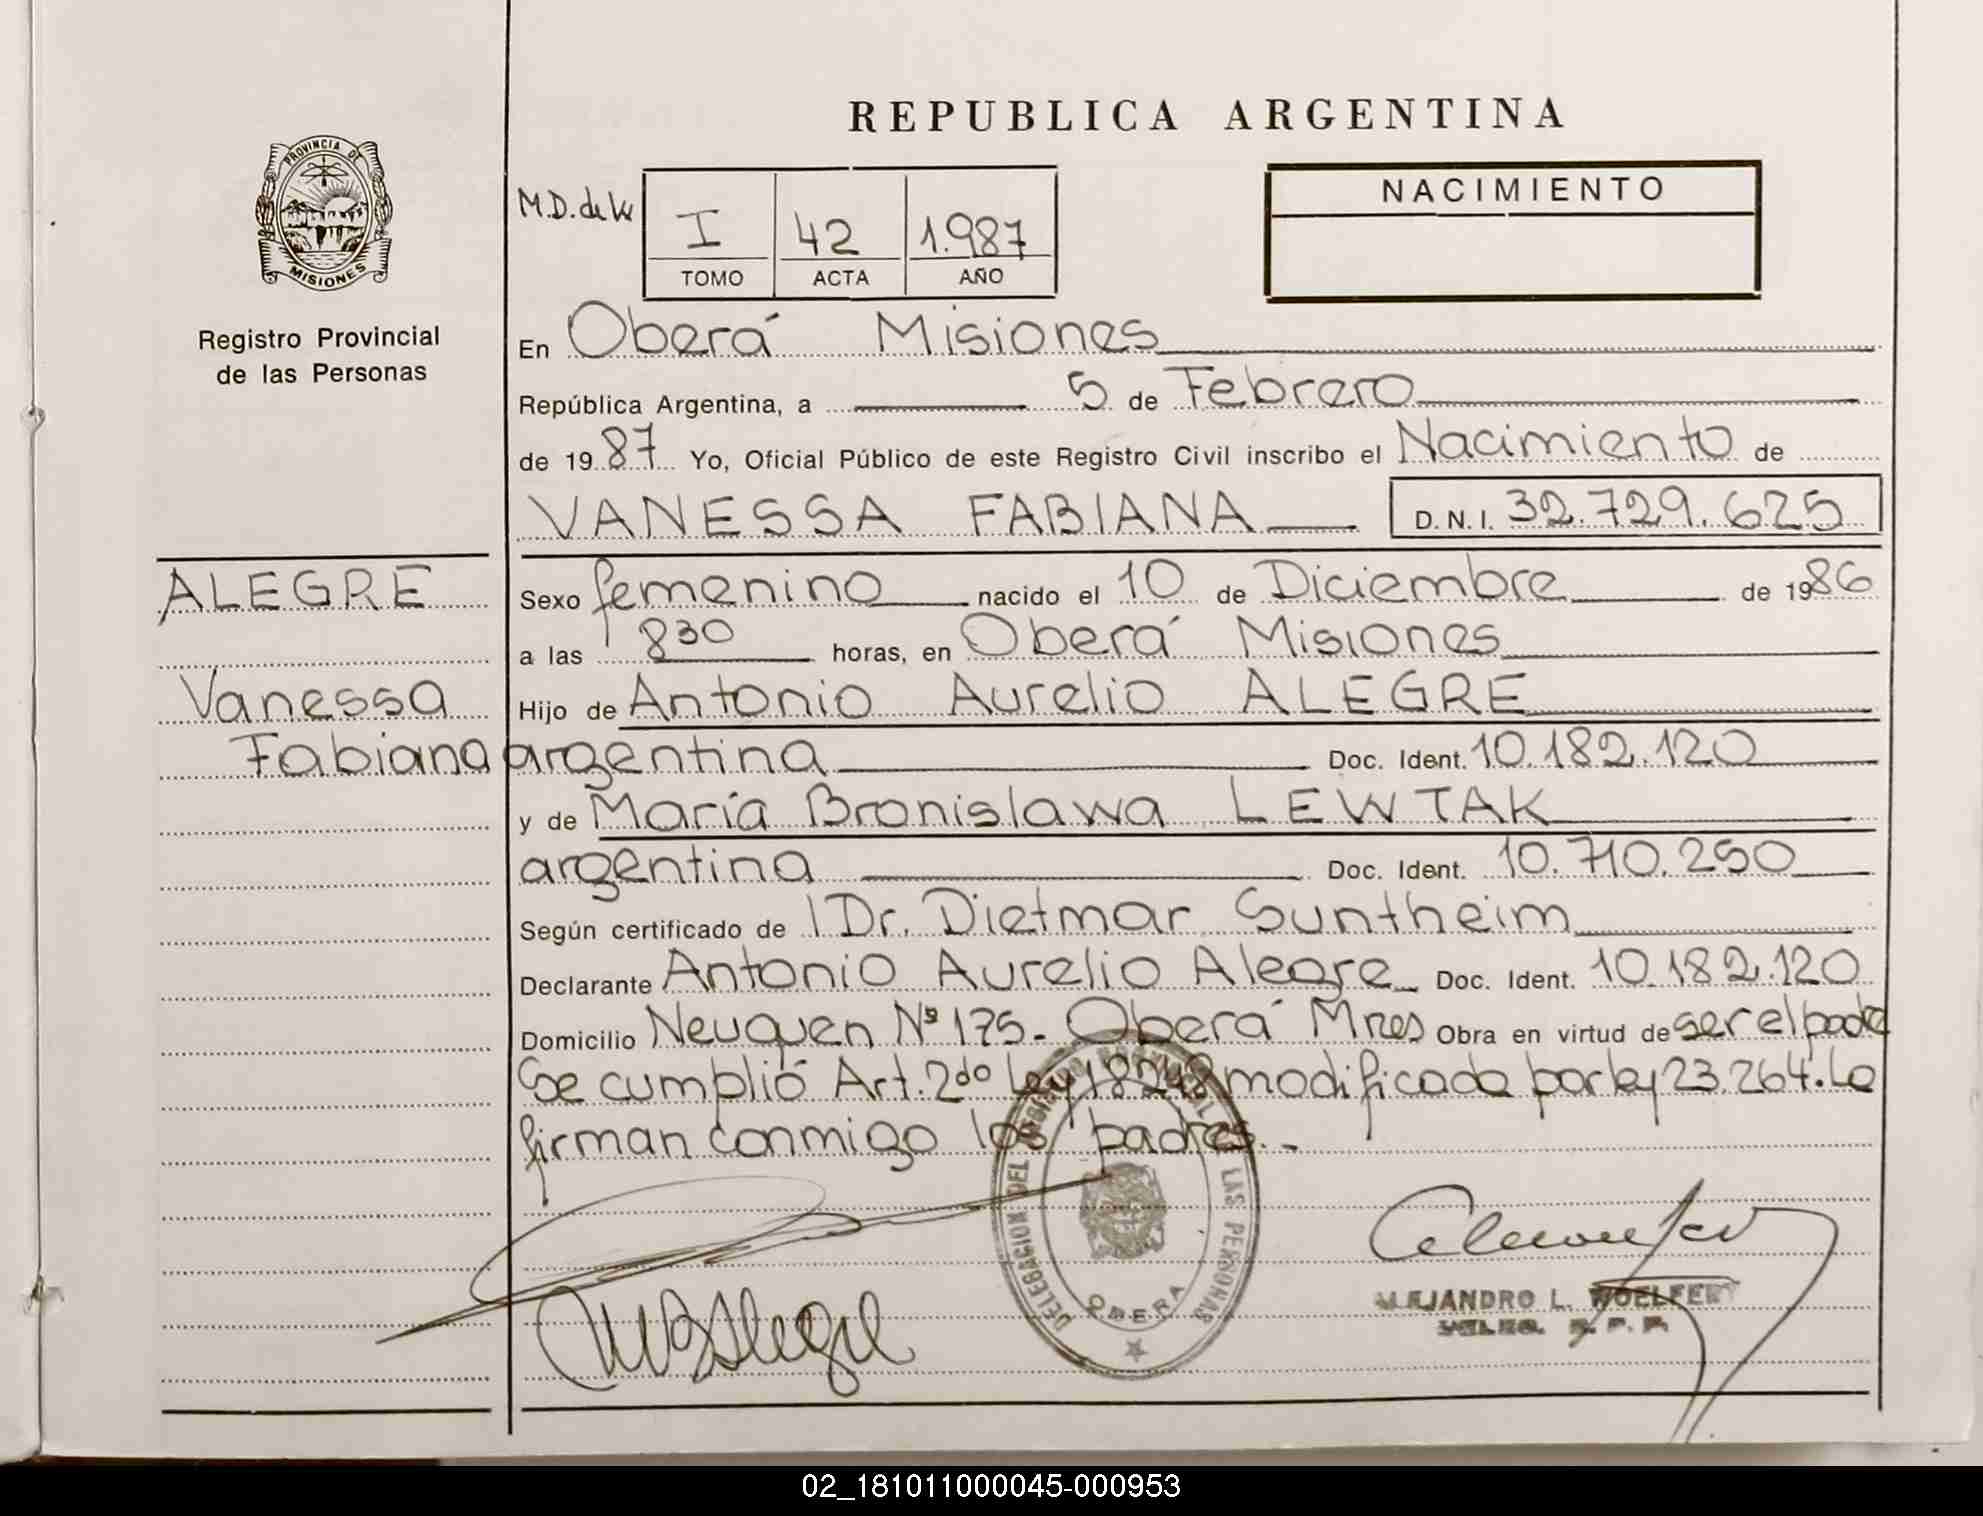 REPUBLICA ARGENTINA
PROVINCIA DE
MISIONES
Registro Provincial
de las Personas
M.D. de W
I 42 1.987
TOMO ACTA AÑO
NACIMIENTO
En Oberá Misiones
República Argentina, a 5 de Febrero
de 1987 Yo, Oficial Público de este Registro Civil inscribo el Nacimiento de
VANESSA FABIANA D.N.I. 32.729.625
ALEGRE
Vanessa
Fabiana
Sexo femenino nacido el 10 de Diciembre de 1986
a las 8 30 horas, en Oberá Misiones
Hijo de Antonio Aurelio ALEGRE
argentina Doc. Ident. 10.182.120
y de María Bronislawa LEWTAK
argentina Doc. Ident. 10.710.250
Según certificado de Dr. Dietmar Suntheim
Declarante Antonio Aurelio Alegre Doc. Ident. 10.182.120
Domicilio Neuquen Nº 175- Oberá Mnes Obra en virtud de ser el padre
Se cumplió Art. 2do Ley 18248 modificada por ley 23.264. Lo
firman conmigo los padres.-
DELEGACION DEL REGISTRO PROVINCIAL DE LAS PERSONAS
OBERA
MB Alegre
ALEJANDRO L. WOELFERT
R. P. P.
02_181011000045-000953